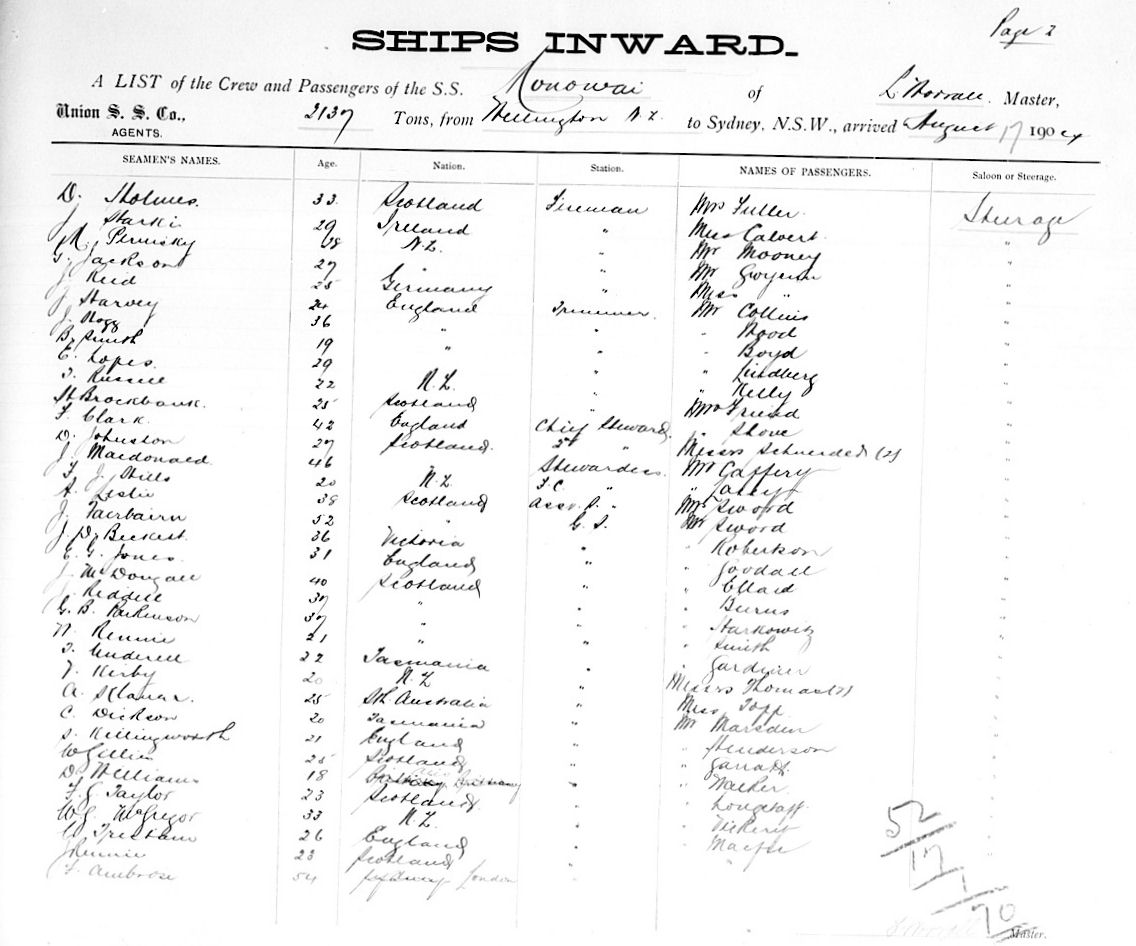 Page 2
SHIPS INWARD.
A LIST of the Crew and Passengers of the S.S. Monowai of L Worrall. Master,
Union S. S. Co., 2137 Tons, from Wellington N.Z. to Sydney, N.S.W., arrived August 17 190
AGENTS.
SEAMEN'S NAMES. Age. Nation. Station. NAMES OF PASSENGERS. Saloon or Steerage.
D. Holmes. 33 Scotland Fireman Mrs Fuller Steerage
J 29 Ireland " Miss Calvert "
18 N.Z. " Mr Mooney "
Jackson 27 " " Mr Gwynn "
J. Reid 25 Germany " Miss " "
J. Harvey 24 England Trimmer Mr Collins "
J. Hogg 36 " " " Wood "
B. Smith 19 " " " Boyd "
E. Lopes. 29 " " Lindberg "
T. Russell 22 N.Z. " " Kelly "
Brockbank. 25 Scotland " Mrs Friend "
F. Clark. 42 England Chief Steward " "
D. Johnston 27 Scotland. 2nd " Messrs (2) "
J. Macdonald 46 Stewardess Mr Caffery "
F. J. Hills 20 N.Z. F.C. " " "
Leslie 38 Scotland Asst. " Mrs Sword "
J. Fairbairn 52 " G. S. Mr Sword "
J. D. 36 Victoria " " Robertson "
E. G. Jones. 31 England " " Goodall "
J. McDougall 40 Scotland " " Ellard "
J. Riddell 37 " " " Burns "
G. B. Parkinson 37 " " " Harkowitz "
Rennie 21 " " " Smith "
T. Underell 22 Tasmania " " Gardiner "
Kirby 20 N.Z " Messrs Thomas (2) "
A. 25 Sth Australia " Miss Topp "
C. Dickson 20 Tasmania " Mr Marsden "
S. Killingworth 21 England " " Henderson "
W Gillies 25 Scotland " " "
D. Williams 18 " " Walker "
F. G. Taylor 23 Scotland " " Longstaff "
W. G. McGregor 33 N.Z. " " "
Tristram 26 England " " "
J Rennie 23 Scotland " "
F. Ambrose 54 London "
52
17
1
70
Master.